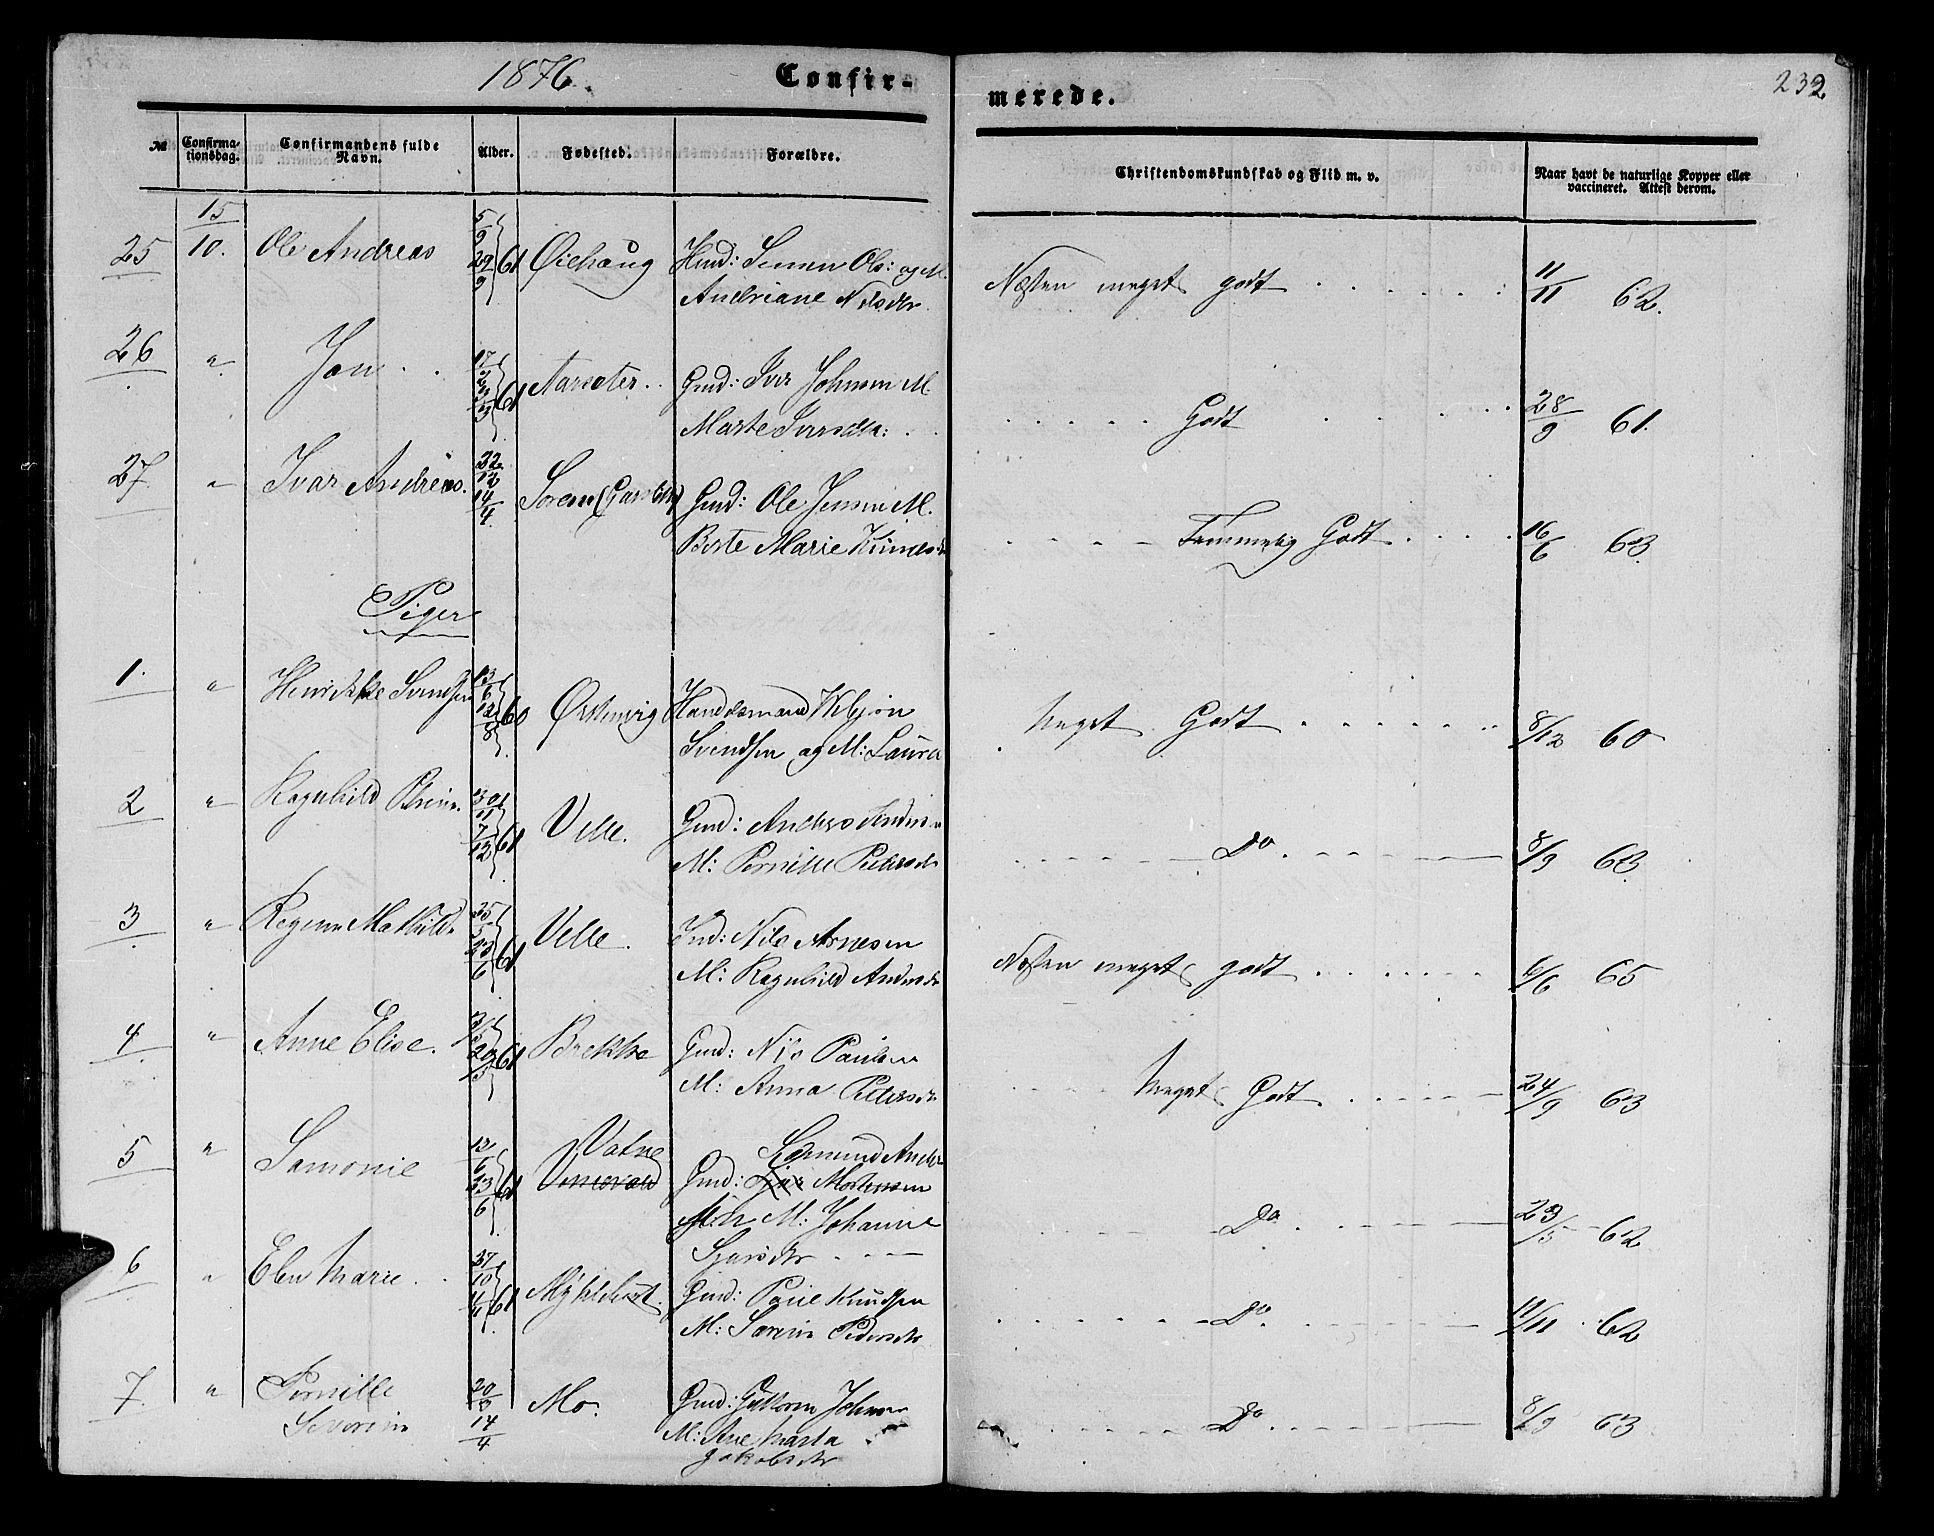 1876. Confir-
merede. 232
№ Confirma-tionsdag. Confirmandens fulde Navn. Alder. Fødested. Forældre. Christendomskundskab og Flid m. v. Naar havt de naturlige Kopper eller vaccineret. Attest derom.
15
25 10. Ole Andreas 5/9 29/9 61 Øiehaug Huusm: Simen Ols: og M.
Andriane Nilsdtr. Næsten meget godt 11/11 62.
26 " Jon 61 Aarseter Gmd: Iver Johnsen M.
Marte Iversdtr: Godt 28/9 61.
27 " Ivar Andreas. 22/12 14/4 Gmd: Ole Jensen M.
Berte Marie Temmelig Godt 16/6 63.
Piger
1. " Henrikke Svendsen 13/6 12/8 60 Ørstenvig Handelsmand
Svendsen og M: Laura Meget Godt 8/12 60
2 " Ragnhild 30/11 7/12 61 Velle. Gmd: Anders
M: Pernille Petersdtr Do. 8/9 63.
3 " Mathilde 25/5 61 Velle. Ind: Nils Arnesen
M: Ragnhild Andersdtr Næsten meget godt 6/6 65
4 " Anne Elise. 61 Brekke Gmd: Nils Paulsen
M: Anna Petersdtr Meget Godt 24/9 63
5 " Samonie 12/6 23/6 61 Vatne
Gmd: Mortensen
M: Johanne
Sjursdtr Do 23/5 62
6 " Elen Marie 61 Myklebust. Gmd: Knudsen
M: Pedersdtr Do. 11/11 62
7 " Pernille
Severine 20/3 14/4 Mo. Gmd: Guttorm Johnsen
M: Ane Marta
Jakobsdtr Do 8/9 63